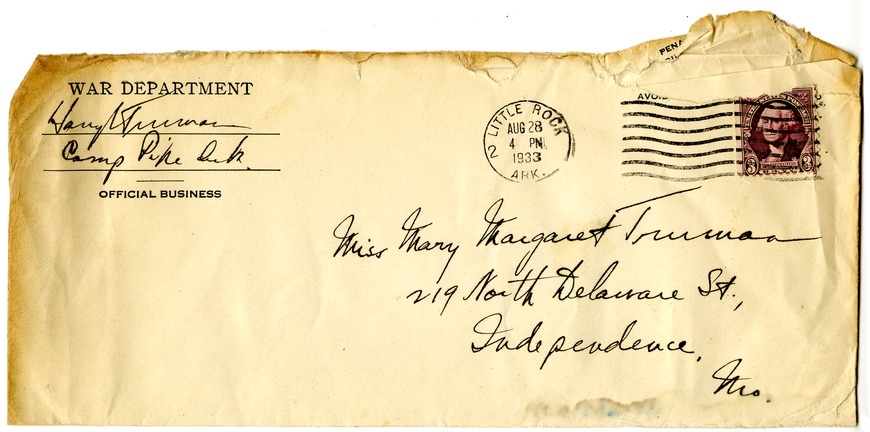 WAR DEPARTMENT
Harry S Truman
Camp Pike Ark.
OFFICIAL BUSINESS
PENA
AVOID
LITTLE ROCK
2
AUG 28
4 PM
1933
ARK.
3 3
Miss Mary Margaret Truman
219 North Delaware St.,
Independence,
Mo.